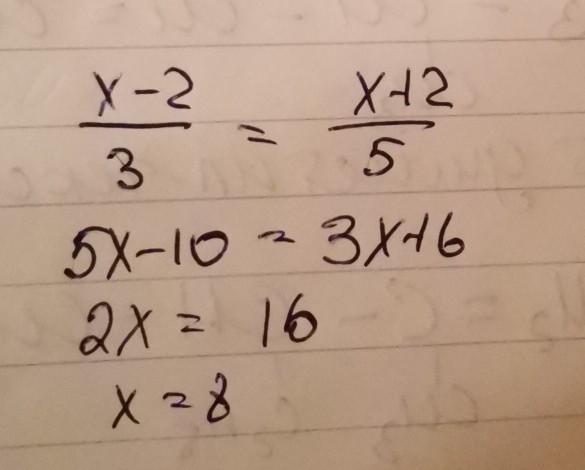 x-2 x+2
=
3 5
5x-10 = 3x+6
2x = 16
x = 8